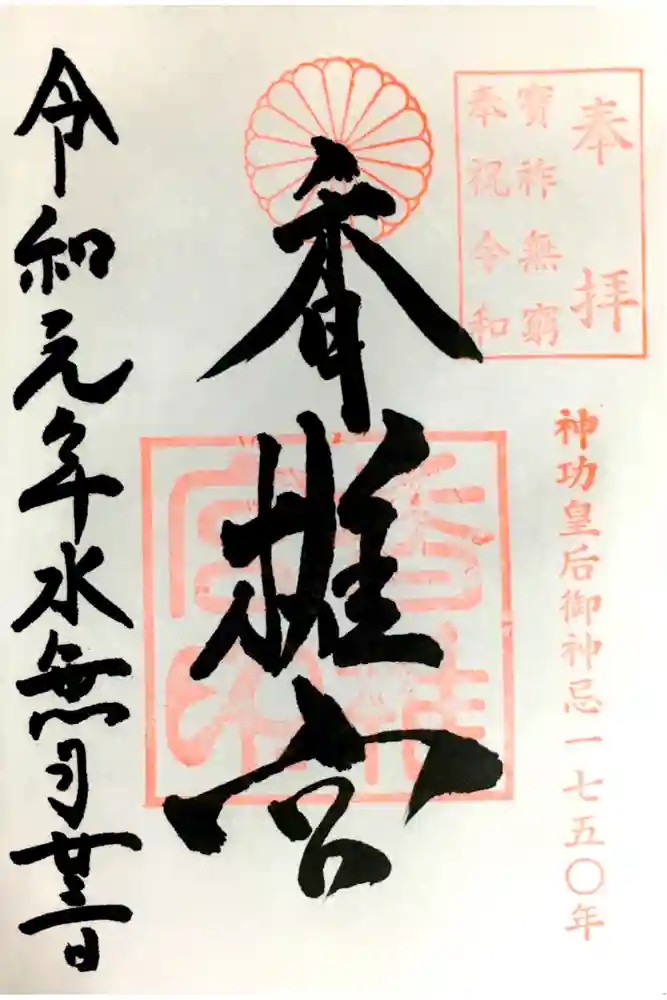 奉拝
寶祚無窮
奉祝令和
神功皇后御神忌一七五〇年
香椎宮
香椎宮印
令和元年水無月廿三日